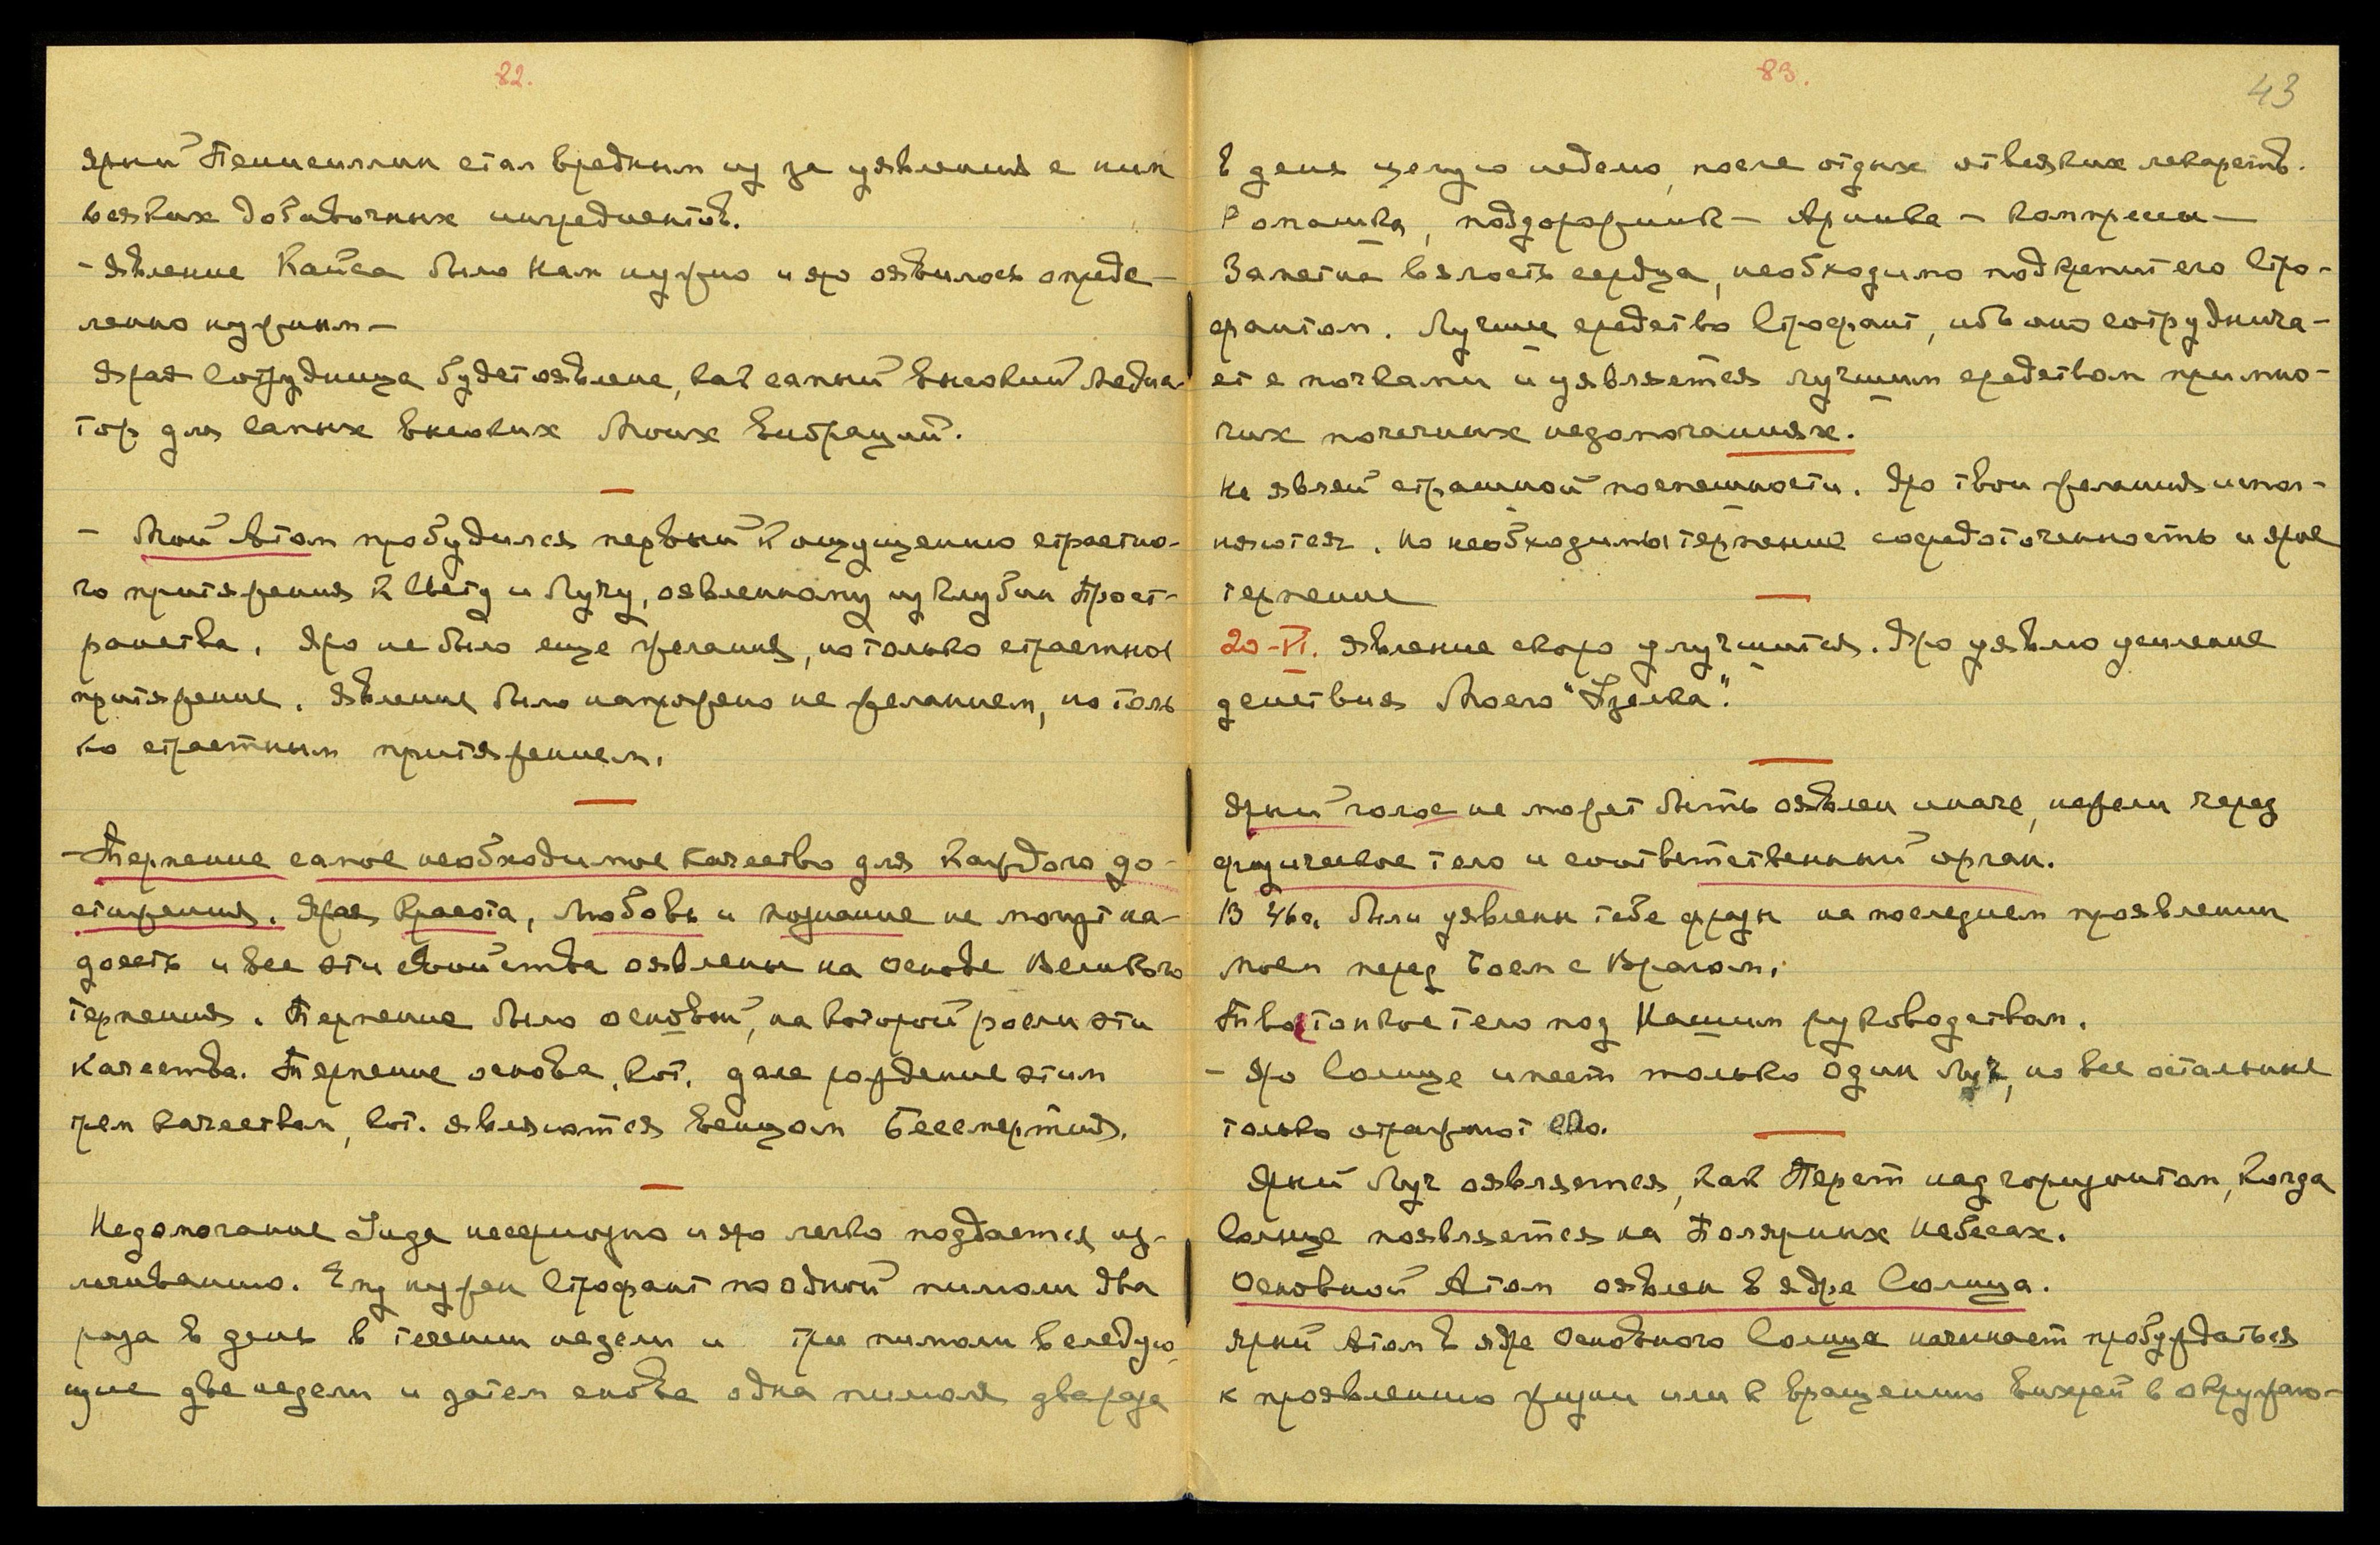 82.
ярый Пенисиллин стал вредным из за уявления с ним
всяких добавочных ингредиентов.
- Явление Кайса было Нам нужно и яро оявилось опреде-
ленно нужным -
Ярая Сотрудница будет оявлена, как самый высокий Медиа-
тор для самых высоких Моих Вибраций.
- Мой Атом пробудился первый к ощущению страстно-
го притяжения к Свету и Лучу, оявленному из глубин Прост-
ранства. Яро не было еще желания, но только страстное
притяжение. Явление было напряжено не желанием, но толь
ко страстным притяжением.
- Терпение самое необходимое качество для каждого до-
стижения. Ярая Красота, Любовь и познание не могут на-
доесть и все эти свойства оявлены на основе Великого
терпения. Терпение было основой, на которой росли эти
качества. Терпение основа, кот. дала рождение этим
трем качествам, кот. являются венцом Бессмертия.
Недомогание Гида несерьозно и яро легко поддается из-
лечиванию. Ему нужен Строфант по одной пилюли два
раза в день в течении недели и три пилюли в следую-
щие две недели и затем снова одна пилюля два раза
83.
43
в день целую неделю, после отдых от всяких лекарств.
Ромашка, подорожник - Арника - компрессы -
Заметна вялость сердца, необходимо подкрепит его Стро-
фантом. Лучшее средство Строфант, ибо оно сотруднича-
ет с почками и уявляется лучшим средством при мно-
гих почечных недомоганиях.
Не являй страшной поспешности. Яро твои желания испол-
няются. Но необходимы терпение сосредоточенность и ярое
терпение
20-VI. Явление скоро улучшится. Яро уявлю усиление
действия Моего "Узелка".
Ярый голос не может быть оявлен иначе, нежели через
физическое тело и соответственный орган.
В 46г. были уявлены тебе фразы на последнем проявлении
Моем перед Боем с Врагом.
Твое тонкое тело под Нашим руководством.
- Яро Солнце имеет только один Луч, но все остальные
только отражают его.
Ярый Луч оявляется, как Перст над горизонтом, когда
Солнце появляется на Полярных Небесах.
Основной Атом оявлен в ядре Солнца.
Ярый Атом в ядре Основного Солнца начинает пробуждаться
к проявлению жизни или к вращению вихрей в окружаю-